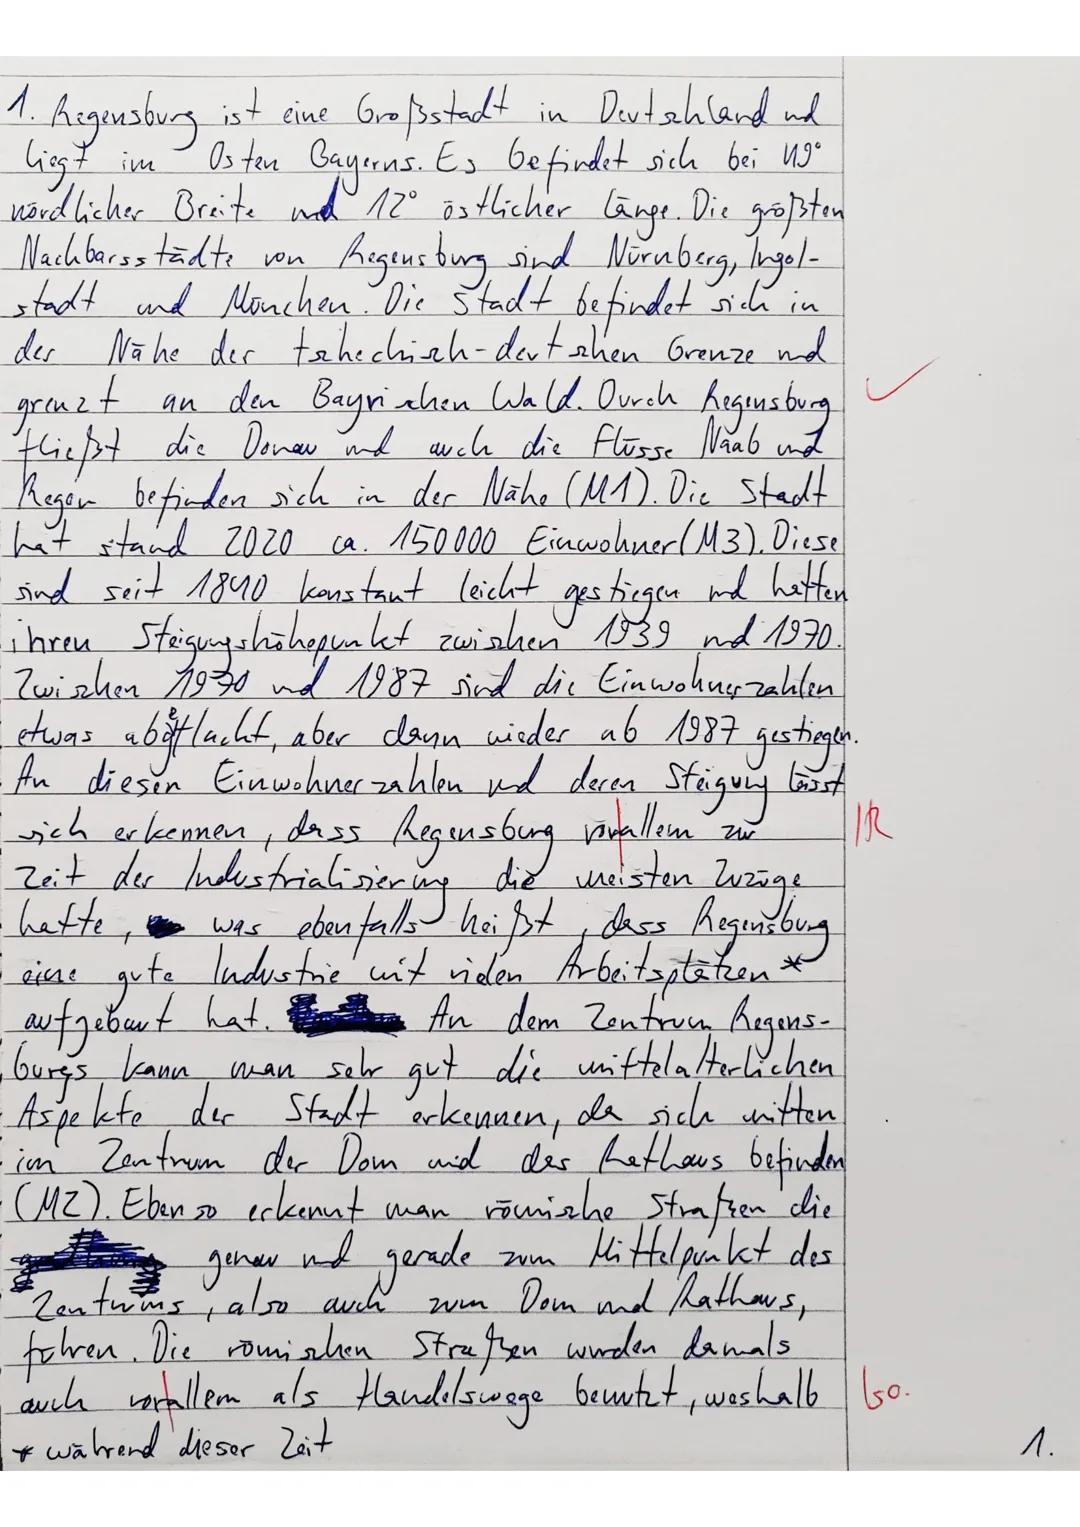 1. Regensburg ist eine Großstadt in Deutschland und
liegt im Osten Bayerns. Es befindet sich bei 49°
nördlicher Breite und 12° östlicher Länge. Die größten
Nachbarsstädte von Regensburg sind Nürnberg, Ingol-
stadt und München. Die Stadt befindet sich in
der Nähe der tschechisch-deutschen Grenze und ✓
grenzt an den Bayrischen Wald. Durch Regensburg
fließt die Donau und auch die Flüsse Naab und
Regen befinden sich in der Nähe (M1). Die Stadt
hat stand 2020 ca. 150000 Einwohner (M3). Diese
sind seit 1840 konstant leicht gestiegen und hatten
ihren Steigungshöhepunkt zwischen 1939 und 1970.
Zwischen 1970 und 1987 sind die Einwohnerzahlen
etwas abgeflacht, aber dann wieder ab 1987 gestiegen.
An diesen Einwohnerzahlen und deren Steigung lässt
sich erkennen, dass Regensburg vorallem zur IR
Zeit der Industrialisierung die meisten Zuzüge
hatte, was ebenfalls heißt, dass Regensburg
eine gute Industrie mit vielen Arbeitsplätzen *
aufgebaut hat. An dem Zentrum Regens-
burgs kann man sehr gut die mittelalterlichen
Aspekte der Stadt erkennen, da sich mitten
im Zentrum der Dom und das Rathaus befinden
(M2). Ebenso erkennt man römische Straßen die
genau und gerade zum Mittelpunkt des
Zentrums, also auch zum Dom und Rathaus,
führen. Die römischen Straßen wurden damals
auch vorallem als Handelswege benutzt, weshalb so.
* während dieser Zeit
1.